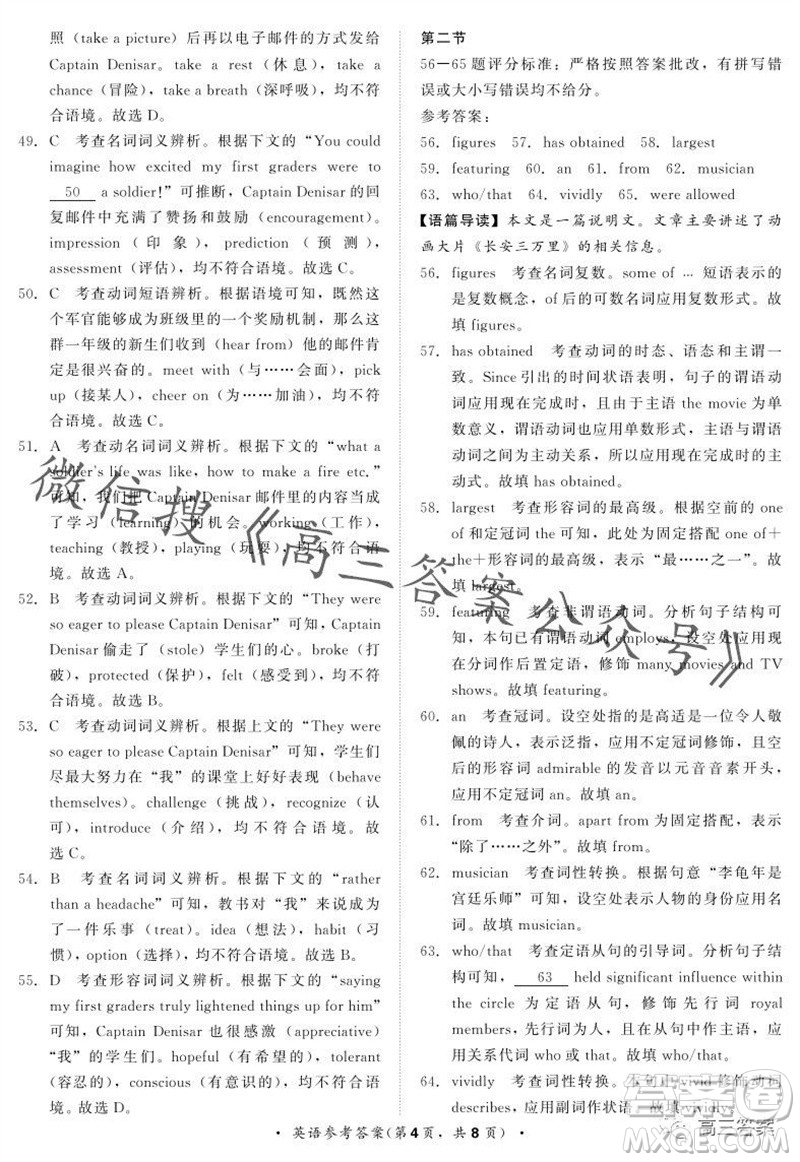 照（take a picture）后再以电子邮件的方式发给
Captain Denisar。take a rest（休息），take a
chance（冒险），take a breath（深呼吸），均不符
合语境。故选 D。
49. C 考查名词词义辨析。根据下文的“You could
imagine how excited my first graders were to
50 a soldier!”可推断，Captain Denisar 的回
复邮件中充满了赞扬和鼓励（encouragement）。
impression（印象），prediction（预测），
assessment（评估），均不符合语境。故选 C。
50. C 考查动词短语辨析。根据语境可知，既然这
个军官能够成为班级里的一个奖励机制，那么这
群一年级的新生们收到（hear from）他的邮件肯
定是很兴奋的。meet with（与……会面），pick
up（接某人），cheer for（为……加油），均不符合
语境。故选 C。
51. A 考查动名词词义辨析。根据下文的“what a
soldier's life was like, how to make a fire etc.”
可知，我们把 Captain Denisar 邮件里的内容当成
了学习（learning）的机会。working（工作），
teaching（教授），playing（玩耍），均不符合语
境。故选 A。
52. B 考查动词词义辨析。根据下文的“They were
so eager to please Captain Denisar”可知，Captain
Denisar 偷走了（stole）学生们的心。broke（打
破），protected（保护），felt（感受到），均不符合
语境。故选 B。
53. C 考查动词词义辨析。根据上文的“They were
so eager to please Captain Denisar”可知，学生们
尽最大努力在“我”的课堂上好好表现（behave
themselves）。challenge（挑战），recognize（认
可），introduce（介绍），均不符合语境。故
选 C。
54. B 考查名词词义辨析。根据下文的“rather
than a headache”可知，教书对“我”来说成
了一件乐事（treat）。idea（想法），habit（习
惯），option（选择），均不符合语境。故选 B。
55. D 考查形容词词义辨析。根据下文的“saying
my first graders truly lightened things up for him”
可知，Captain Denisar 也很感激（appreciative）
“我”的学生们。hopeful（有希望的），tolerant
（容忍的），conscious（有意识的），均不符合语
境。故选 D。
第二节
56—65 题评分标准：严格按照答案批改，有拼写错
误或大小写错误均不给分。
参考答案：
56. figures 57. has obtained 58. largest
59. featuring 60. an 61. from 62. musician
63. who/that 64. vividly 65. were allowed
【语篇导读】本文是一篇说明文。文章主要讲述了动
画大片《长安三万里》的相关信息。
56. figures 考查名词复数。some of … 短语表示的
是复数概念，of 后的可数名词应用复数形式。故
填 figures。
57. has obtained 考查动词的时态、语态和主谓一
致。Since 引出的时间状语表明，句子的谓语动
词应用现在完成时，且由于主语 the movie 为单
数意义，谓语动词也应用单数形式，主语与谓语
动词之间为主动关系，所以用现在完成时的主
动式。故填 has obtained。
58. largest 考查形容词的最高级。根据空前的 one
of 和定冠词 the 可知，此处为固定搭配 one of＋
the＋形容词的最高级，表示“最……之一”。故
填 largest。
59. featuring 考查非谓语动词。分析句子结构可
知，本句已有谓语动词 employs，设空处应用现
在分词作后置定语，修饰 many movies and TV
shows。故填 featuring。
60. an 考查冠词。设空处指的是高适是一位令人敬
佩的诗人，表示泛指，应用不定冠词修饰，且空
后的形容词 admirable 的发音以元音音素开头，
应用不定冠词 an。故填 an。
61. from 考查介词。apart from 为固定搭配，表示
“除了……之外”。故填 from。
62. musician 考查词性转换。根据句意“李龟年是
宫廷乐师”可知，此处应用表示人物的身份应用名
词。故填 musician。
63. who/that 考查定语从句的引导词。分析句子结
构可知， 63 held significant influence within
the circle 为定语从句，修饰先行词 royal
members，先行词为人，且在从句中作主语，应
用关系代词 who/that。故填 who/that。
64. vividly 考查词性转换。本句中 vivid 修饰动词
describes，应用副词作状语。故填 vividly。
• 英语参考答案（第 4 页，共 8 页）•
微信搜《高三答案公众号》
高三答案